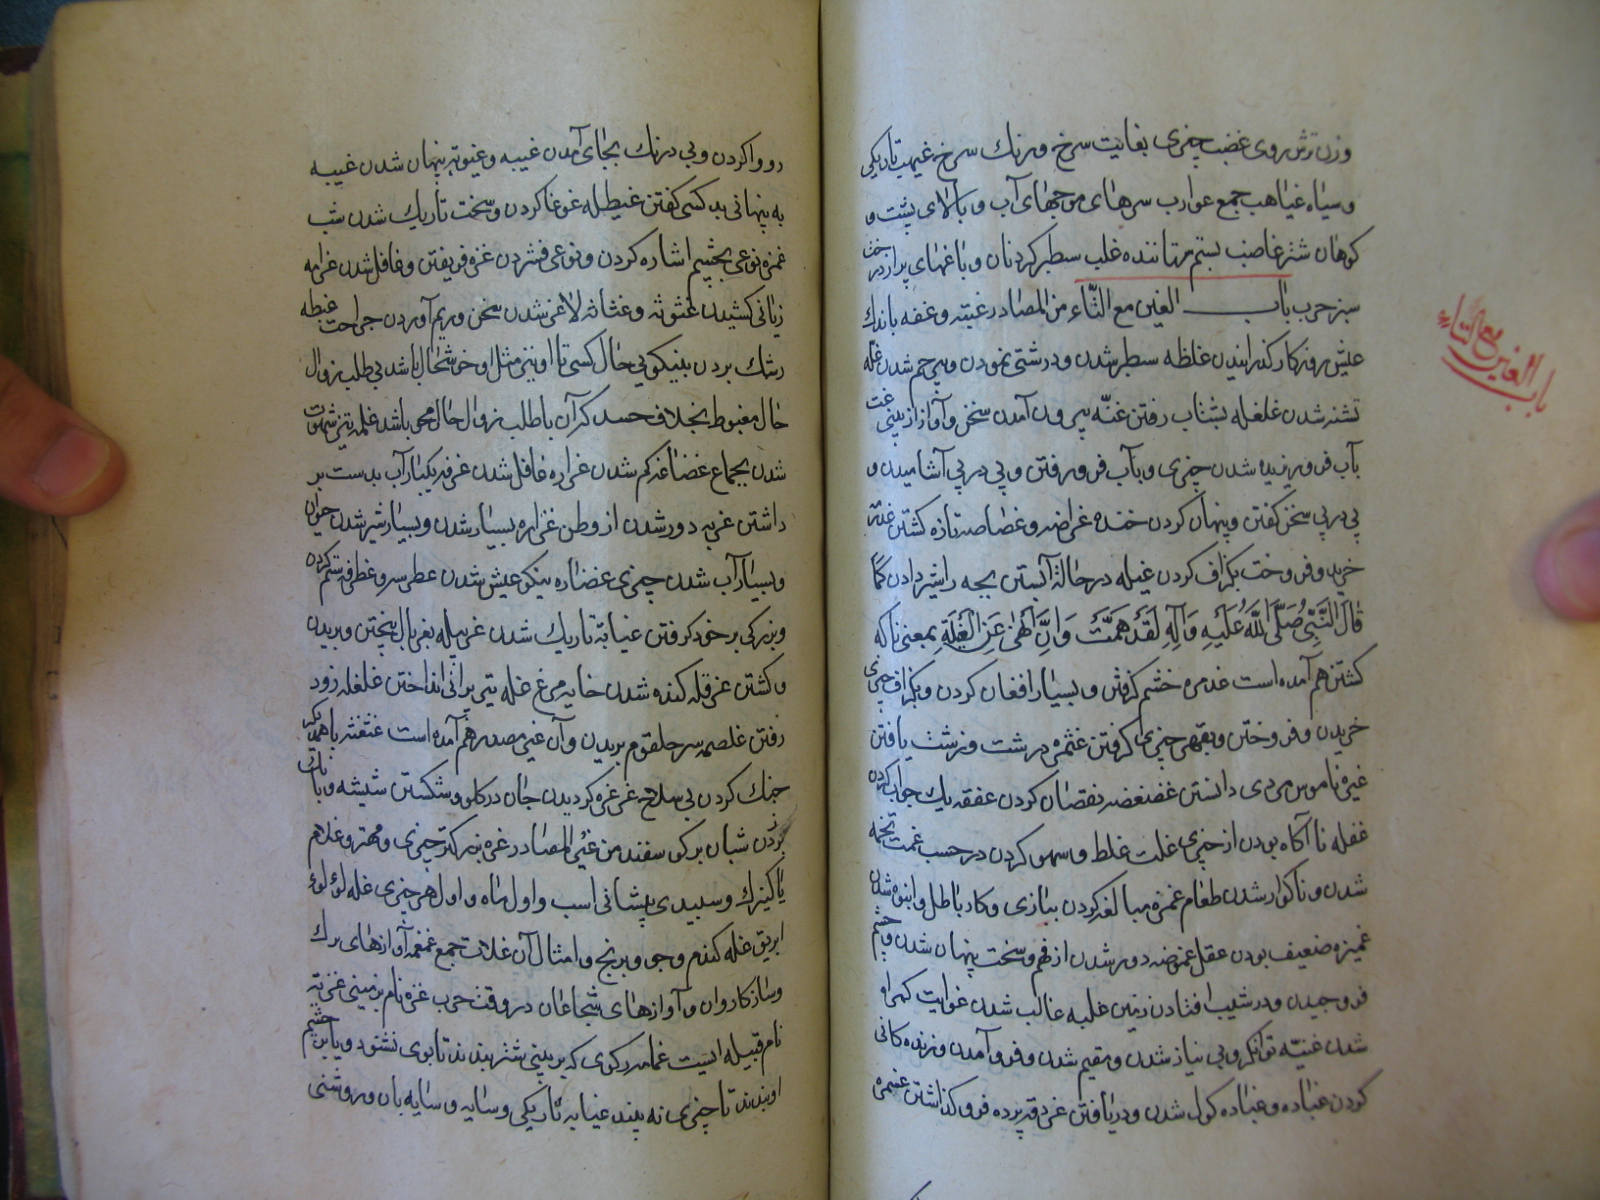 وزن ترش روی غضب چیزی بغایت سرخ و رنك سرخ غیهب تاریکی
و سیاه غیاهب جمع غوارب سرهای موجهای آب و بالای پشت و
کوهان شتر غاصب بستم ستاننده غلب سطبر کردنان و باغهای پر از درخت
سبز حرب باب الغین مع التّاء من المصادر غبته و غفه باندك
عیش روزکار کذرانیدن غلظه سطبر شدن و درشتی نمودن و بی رحم شدن غله
تشنه شدن غلغله بشتاب رفتن غنّه بیرون آمدن سخن و آواز از بینی غت
بآب فرو رزیده شدن چیزی و بآب فرو رفتن و پی در پی آشامیدن و
پی در پی سخن کفتن و پنهان کردن خنده غراضه و غضاضه تازه کشتن
خرید و فروخت بکزاف کردن غیله در حالة آبستن بچه را شیر دادن کما
قال النّبیّ صلّی اللّه علیه و آله لقد هممت وان انهی عن الغیلة بمعنی ناکه
کشتن هم آمده است غذمره خشم کرفتن و بسیار افغان کردن و بکزاف چیزی
خریدن و فروختن و بقهر چیزی کرفتن غثمره درشت و زشت یافتن
غیره ناموس مردی دانستن غضغضه نقصان کردن غفقه یك جواب کردن
غفله ناآکاه بودن از چیزی غلت غلط و سهو کردن در حسب غمت تخمه
شدن و ناکوار شدن طعام غمزه مبالغه کردن ببازی و کار باطل و انبوه شدن
غمیزه ضعیف بودن عقل غموضه دور شدن از فهم و سخت پنهان شدن و چشم
فروجیدن و در شیب افتادن زمین غلبه غالب شدن غوایت کمراه
شدن غنیّه توانکر و بی نیاز شدن و مقیم شدن و فرو آمدن و زنده کانی
کردن غباده و غباده کول شدن و دریافتن غردقه پرده فرو کذاشتن
باب الغین مع التاء
روواکردن و بی درنك بجای آمدن غیبه و غیوبه پنهان شدن غیبه
به پنهانی بد کسی کفتن غیطله غوغا کردن و سخت تاریك شدن شب
غمزه نوعی بچشم اشاره کردن و نوعی فشردن غره فریفتن و غافل شدن غرامه
زیانی کشیدن غثوثه و غثاثه لاغر شدن سخن و ریم آوردن جراحت غبطه
رشك بردن بنیکویی حال کسی تا او نیز مثل او خوشحال باشد بی طلب زوال
حال مغبوط بخلاف حسد که آن با طلب زوال حال می باشد غلمه تیز شهوت
شدن بجماع غضاغه کم شدن غراره غافل شدن غرفه یکبار آب بدست بر
داشتن غربه دور شدن از وطن غزاره بسیار شدن و بسیار شیر شدن حیوان
و بسیار آب شدن چیزی غضاره نیکو عیش شدن غطرسه و غطرفه ستم کردن
و بزرکی بر خود کرفتن غیابة تاریك شدن غربله بغربال بیختن و بریدن
و کشتن غرقله کنده شدن خایه مرغ غله تیر پرانی انداختن غلغله زود
رفتن غلصمه سر حلقوم بریدن و آن غیر مصدر هم آمده است غثغثه با همدیکر
جنك کردن بی سلاح غرغره کردیدن جان در کلو و شکستن شیشه و بانك
زدن شبان بر کوسفند من غیر المصادر غره بزرکتر چیزی و مهتر و غلام
یا کنیزك و سپیدی پیشانی اسب و اول ماه و اول هر چیزی غله لؤلؤ
ابریق غله کندم و جو و برنج و امثال آن غلات جمع غمغمه آوازهای برك
و ساز کاروان و آوازهای شجاعان در وقت حرب غزه نام زمینی غزیّه
نام قبیله ایست غمامه رکوی که بر بینی شتر بندند تا بوی نشنود و یا بر چشم
او بندند تا چیزی نه بیند غیایه تاریکی و سایه و سایه بان و روشنی